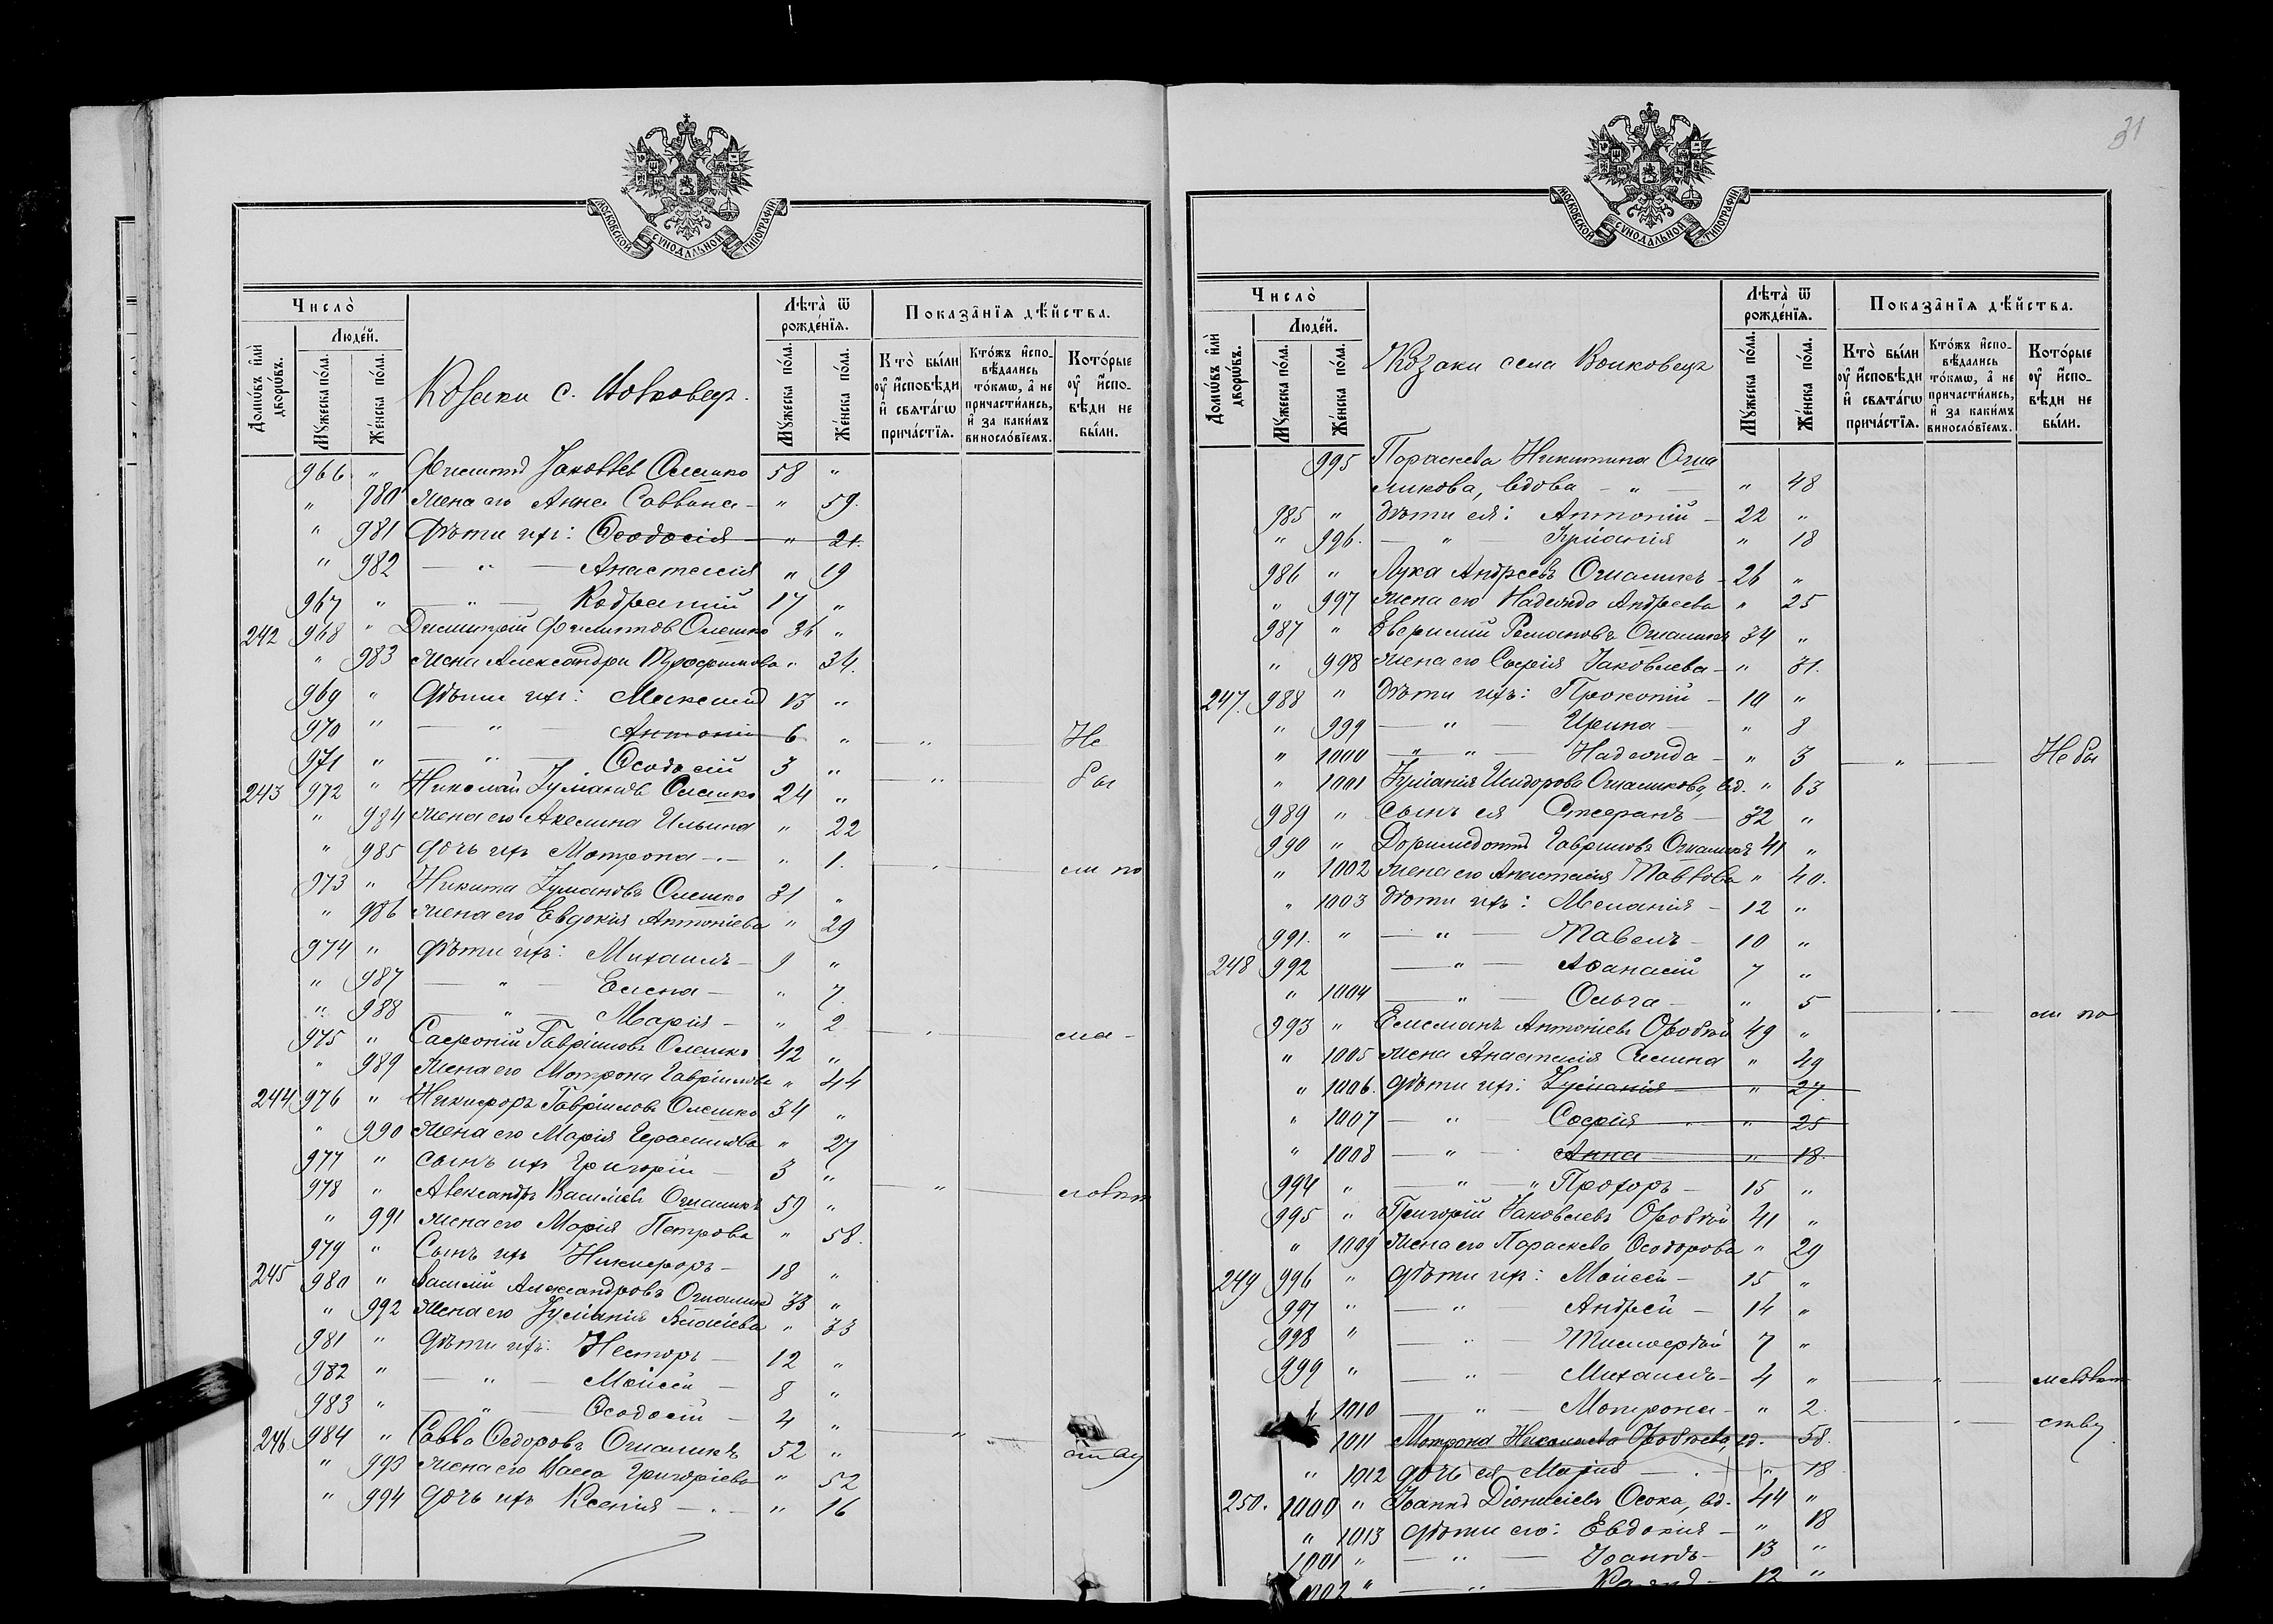 МОСКОВСКОЙ СУНОДАЛЬНОЙ ТИПОГРАФІИ
Число̀
Людéй.
Домѡ́въ и҆лѝ дворѡ́въ.
Мꙋ́жеска по́ла.
Же́нска по́ла.
Козаки с. Волковец.
Лѣта̀ ѿ рожде́нїѧ.
Мꙋ́жеска по́ла.
Же́нска по́ла.
Показа̑нїѧ дѣ́йства.
Кто̀ бы́ли оу҆ и҆сповѣди и҆ свѧта́гѡ прича́стїѧ.
Кто́жъ и҆спо-вѣдались то́кмѡ, а҆ не причасти́лись, и҆ за каки́мъ винослóвїемъ.
Кото́рые оу҆ и҆спо-вѣди не бы́ли.
966 " Филиппъ Іаковлев Олешко 58 "
" 980 Жена его Анна Саввина - " 59.
" 981 Дѣти ихъ: Ѳеодосія " 21.
" 982 — " — Анастасія " 19
967 " — " — Кодратій 17 "
242 968 " Димитрій Филиппов Олешко 36 "
" 983 Жена Александра Трофимова " 34.
969 " Дѣти ихъ: Максимъ 13 "
970 " — " — Антоній 6 " — " — Не
971 " — " — Ѳеодосій 3 " — " — бы
243 972 " Николай Іуліановъ Олешко 24 "
" 984 Жена его Акилина Ильина " 22
" 985 Дочь ихъ Матрона — " 1. — " — ли по
973 " Никита Іуліановъ Олешко 31 "
" 986 Жена его Евдокія Антоніева " 29
974 " Дѣти ихъ: Михаилъ - 9 "
" 987 — " — Елена - " 7
" 988 — " — Марія - " 2 — " — ма-
975 " Сафроній Гавріиловъ Олешко 42 "
" 989 Жена его Матрона Гавріилова " 44
244 976 " Никифоръ Гавріиловъ Олешко 34 "
" 990 Жена его Марія Герасимова " 27
977 " Сынъ ихъ Григорій - 3 " — " — ловѣт
978 " Александръ Василіевъ Огналикъ 59 "
" 991 Жена его Марія Петрова " 58.
979 " Сынъ ихъ Никифоръ - 18 "
245 980 " Василій Александровъ Огналикъ 33 "
" 992 Жена его Іуліанія Власіева " 33
981 " Дѣти ихъ: Несторъ - 12 "
982 " — " — Моисей - 8 "
983 " — " — Ѳеодосій - 4 " — " — ству
246 984 " Савва Ѳедоровъ Огналикъ 52 "
" 993 Жена его Васса Григоріева " 52
" 994 Дочь ихъ Ксенія — " 16
31
МОСКОВСКОЙ СУНОДАЛЬНОЙ ТИПОГРАФІИ
Число̀
Людéй.
Домѡ́въ и҆лѝ дворѡ́въ.
Мꙋ́жеска по́ла.
Же́нска по́ла.
Козаки села Волковец
Лѣта̀ ѿ рожде́нїѧ.
Мꙋ́жеска по́ла.
Же́нска по́ла.
Показа̑нїѧ дѣ́йства.
Кто̀ бы́ли оу҆ и҆сповѣди и҆ свѧта́гѡ прича́стїѧ.
Кто́жъ и҆спо-вѣдались то́кмѡ, а҆ не причасти́лись, и҆ за каки́мъ винослóвїемъ.
Кото́рые оу҆ и҆спо-вѣди не бы́ли.
995 Параскева Никитина Огна
ликова, вдова - " — " 48
985 " Дѣти ея: Антоній - 22 "
" 996. — " — Іуліанія " 18
986 " Лука Андреевъ Огналикъ - 26 "
" 997 Жена его Надежда Андреева " 25
987 " Евфимій Романовъ Огналикъ 34 "
" 998 Жена его Софія Іаковлева - " 31.
247. 988 " Дѣти ихъ: Прокопій - 10 "
" 999 — " — Ирина - " 8
" 1000 — " — Надежда - " 3 — " — Не бы
" 1001 Іуліанія Исидорова Огналикова, вд. " 63
989 " Сынъ ея Стефанъ — 32 "
990 " Доримедонтъ Гавриловъ Огналикъ 41 "
" 1002 Жена его Анастасія Павлова " 40.
" 1003 Дѣти ихъ: Меланія - 12 "
991. " — " — Павелъ - 10 "
248 992 — " — Аѳанасій 7 "
" 1004 — " — Ольга - " 5 — " — ли по
993 " Емеліанъ Антоніевъ Оробѣй 49 "
" 1005 Жена Анастасія " 49
" 1006. Дѣти ихъ: Іуліанія - " 27.
" 1007 — " — Софія " 25
" 1008 — " — Анна " 18.
994 " — " — " Прохоръ - 15 "
995 " Григорій Іаковлевъ Оробѣй 41 "
" 1009 Жена его Параскева Ѳеодорова " 29
249 996 " Дѣти ихъ: Моисей - 15 "
997 " — " — Андрей - 14 "
998 " — " — Тимоѳей 7 "
999 " — " — Михаилъ - 4 " — " — маловѣт
" 1010 — " — Матрона - " 2. — " — ству
1011 Матрона Николаева Оробѣева, вд. 58.
" 1012 Дочь ея Марія — " 18
250. 1000 " Іоаннъ Діонисіевъ Осока, вд. 44 "
" 1013 Дѣти его: Евдокія - " 18
1001 " — " — Іоаннъ - 13 "
1002 " — " — 12 "